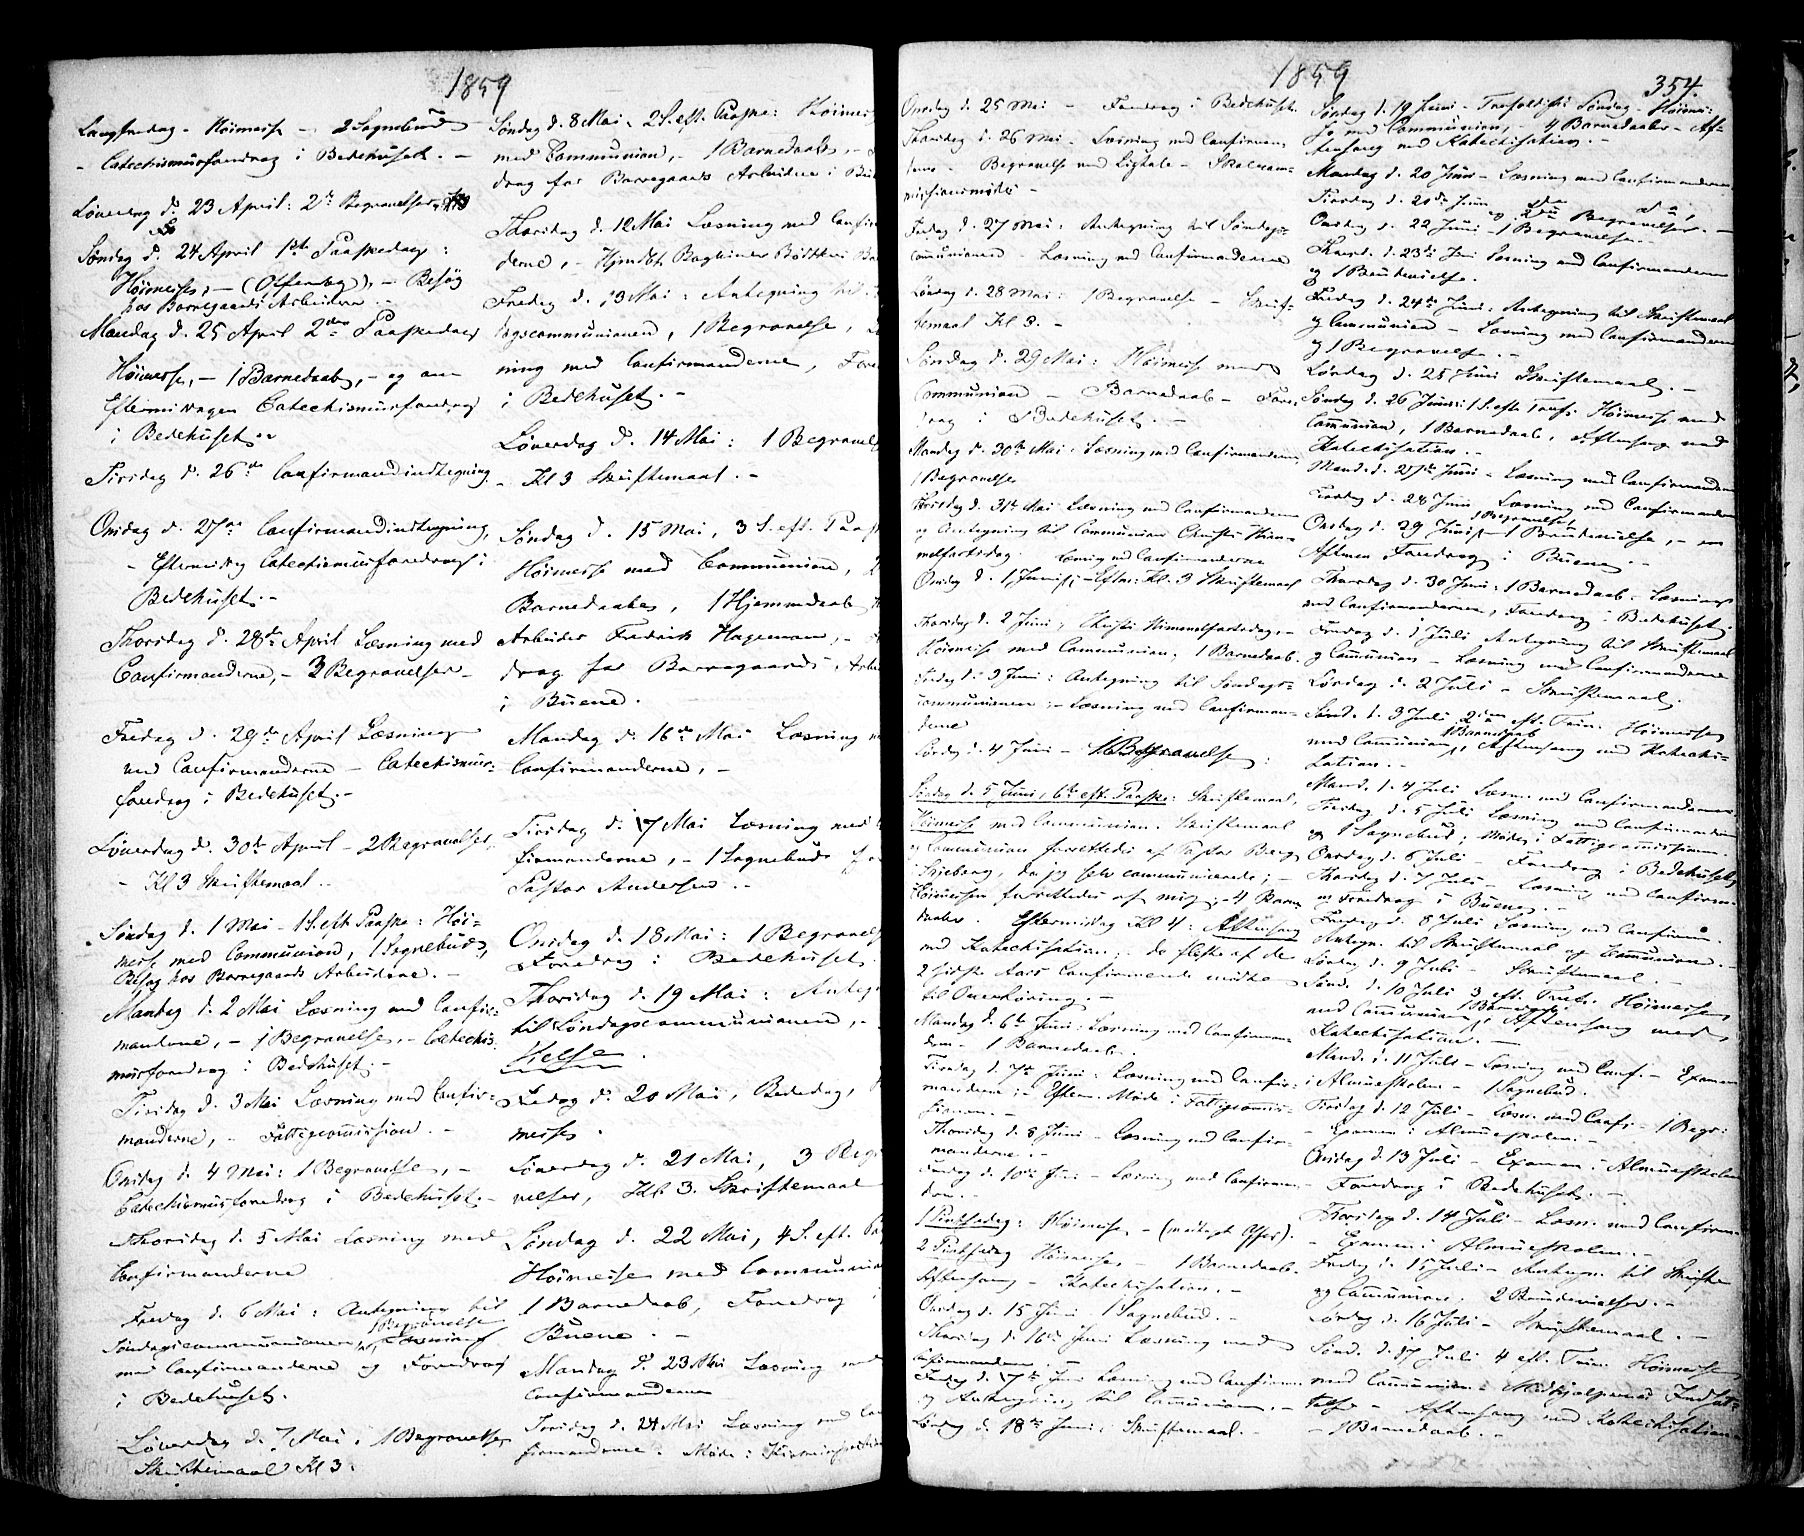 1859
Langfredag - Høimesse - 2 Sognebud
- Catechismusforedrag i Bedehuset. -
Løverdag d. 23 April: 2de Begravelser
Søndag d. 24 April 1ste Paaskedag:
Høimesse, - (Offerdag), - Besøg
hos Borregaards Arbeidere. -
Mandag d. 25 April 2den Paaskedag
Høimesse, - 1 Barnedaab, - og om
Eftermidagen Catechismusforedrag
i Bedehuset. -
Tirsdag d. 26de Confirmandindtegning.
Onsdag d. 27de Confirmandindtegning,
- Eftermidag Catechismusforedrag i
Bedehuset. -
Thorsdag d. 28de April Læsning med
Confirmanderne, - 3 Begravelser -
Fredag d. 29de April Læsning
med Confirmanderne - Catechismus-
foredrag i Bedehuset. -
Løverdag d. 30te April - 2 Begravelser,
- Kl 3 Skriftemaal. -
Søndag d. 1 Mai - 1 S. eft. Paaske: Høi-
messe med Communion, 1 Sognebud,
Besøg hos Borregaards Arbeidere. -
Mandag d. 2 Mai Læsning med Confir-
manderne, - 1 Begravelse, - Catechis-
musforedrag i Bedehuset. -
Tirsdag d. 3 Mai Læsning med Confir-
manderne, - Fattigcommission. -
Onsdag d. 4 Mai: 1 Begravelse, -
Catechismusforedrag i Bedehuset. -
Thorsdag d. 5 Mai Læsning med
Confirmanderne
Fredag d. 6 Mai: Antegning til
1 Begravelse
Søndagscommunionen, Læsning
med Confirmanderne og Foredrag
i Bedehuset.
Løverdag d. 7 Mai, 1 Begravelse
Skriftemaal Kl 3.
Søndag d. 8 Mai, 2 S. eft. Paaske: Høimes
med Communion, - 1 Barnedaab, -
drag for Borregaards Arbeidere i
Thorsdag d. 12 Mai Læsning med Confir
derne, - Hjemdøbt
Fredag d. 13 Mai: Antegning til
dagscommunionen, 1 Begravelse,
ning med Confirmanderne, Fore
i Bedehuset. -
Løverdag d. 14 Mai: 1 Begravel
- Kl 3 Skriftemaal. -
Søndag d. 15 Mai, 3 S. eft. Paask
Høimesse med Communion, 2
Barnedaabe, 1 Hjemmedaab
Arbeider Fredrik Hagemann, -
drag for Borregaards Arbei
i Buene.
Mandag d. 16de Mai Læsning
Confirmanderne, -
Tirsdag d. 17 Mai Læsning med
firmanderne, - 1 Sognebud
Pastor Andersen. -
Onsdag d. 18 Mai: 1 Begravel
Foredrag i Bedehuset.
Thorsdag d. 19 Mai: Anteg
til Søndagscommunionen, -
Fredag d. 20 Mai, Bededag,
messe.
Løverdag d. 21 Mai, 3 Begra
velser, Kl. 3. Skriftemaal
Søndag d. 22 Mai, 4 S. eft. Pa
Høimesse med Communion
1 Barnedaab, Foredrag i
Buene. -
Mandag d. 23 Mai Læsning med
Confirmanderne
Tirsdag d. 24 Mai Læsning med Con
firmanderne: Møde i
1859
354.
Onsdag d. 25 Mai - Foredrag i Bedehuset.
Thorsdag d. 26 Mai. Læsning med Confirman-
derne - Begravelse med Ligtale - Skolecom-
missionsmøde -
Fredag d. 27 Mai: Antegning til Søndags-
communionen - Læsning med Confirmanderne
Løverdag d. 28 Mai: 1 Begravelse - Skrif-
temaal Kl 3. -
Søndag d. 29 Mai: Høimesse med
Communion - Barnedaab - Fore-
drag i Bedehuset. -
Mandag d. 30te Mai. Læsning med Confirmanderne,
1 Begravelse
Tirsdag d. 31te Mai Læsning med Confirmanderne
og Antegning til Communion Christi Him-
melfartsdag.
Onsdag d. 1 Juni: - Efterm. Kl. 3 Skriftemaal
Thorsdag d. 2 Juni, Christi Himmelfartsdag, -
Høimesse med Communion; 1 Barnedaab.
Fredag d. 3 Juni: Antegning til Søndags-
communionen; - Læsning med Confirman-
derne
Lørdag d. 4 Juni - 1 Begravelse:
Søndag d. 5 Juni, 6te eft. Paaske: Skriftemaal,
Høimesse med Communion. Skriftemaal
og Communion forrettedes af Pastor Berg
i Skjeberg, da jeg selv communicerede; -
Høimessen forrettedes af mig; - 4 Barne-
daabe. Eftermidag Kl 4: Aftensang
med Katechisation; - de fleste af de
2 sidste Aars Confirmerede mødte
til Overhøring. -
Mandag d. 6te Juni: Læsning med Confirman-
dern - 1 Barnedaab. -
Tirsdag d. 7de Juni: Læsning med Confir-
manderne; - Efterm. Møde i Fattigcommis-
sionen. -
Thorsdag d. 8 Juni - Læsning med Confir-
manderne. -
Fredag d. 10de Juni - Læsning med Confirman-
dern. -
1 Pintsedag: Høimesse - (modtaget Offer). -
2 Pintsedag Høimesse - 1 Barnedaab.
Aftensang - Katechisation. -
Onsdag d. 15 Juni 1 Sognebud. -
Thorsdag d. 16de Juni Læsning med
Confirmanderne. -
Fredag d. 17de Juni Læsning med Confirman-
og Antegning til Communion. -
Lørdag d. 18de Juni, Skriftemaal. -
Søndag d. 19 Juni - Trefoldigh. Søndag - Høimes-
se med Communion, - 4 Barnedaabe - Af-
tensang med Katechisation. -
Mandag d. 20 Juni - Læsning med Confirmanderne
Tirsdag d. 21de Juni 2de Begravelser. -
Onsdag d. 22 Juni - 1 Begravelse. -
Thorsd. d. 23de Juni Læsning med Confirmanderne
og 1 Brudevielse.
Fredag d. 24de Juni: Antegning til Skriftemaal
og Communion - Læsning med Confirmanderne
og 1 Begravelse. -
Lørdag d. 25 Juni Skriftemaal. -
Søndag d. 26 Juni: 1 S. eft. Tref. Høimesse med
Communion, 1 Barnedaab, Aftensang med
Katechisation. -
Mand. d. 27de Juni - Læsning med Confirmanderne
Tirsdag d. 28 Juni Læsning med Confirmanderne
1 Begravelse
Onsdag d. 29 Juni - 1 Brudevielse, - om
Aftenen Foredrag i Buene. -
Thorsdag d. 30 Juni: 1 Barnedaab. Læsning
med Confirmanderne, Foredrag i Bedehuset.
Fredag d. 1 Juli Antegning til Skriftemaal
og Communion - Læsning med Confirmanderne
Lørdag d. 2 Juli - Skriftemaal.
Sønd. d. 3 Juli 2den eft. Trin. Høimesse
1 Barnedaab
med Communion, Aftensang med Katechi-
sation. -
Mand. d. 4 Juli Læsn. med Confirmanderne
Tirsdag d. 5 Juli Læsning med Confirmanderne
og 1 Sognebud; Møde i Fattigcommissionen.
Onsdag d. 6 Juli - Foredrag i Bedehuset
Thorsdag d. 7 Juli - Læsning med Confirm.
og Foredrag i Buene. -
Fredag d. 8 Juli Læsning med Confirm.
Antegn. til Skriftemaal og Communion. -
Lørdag d. 9 Juli - Skriftemaal. -
Sønd. d. 10 Juli 3 eft. Tref. Høimesse
1 Barnedaab
med Communion, Aftensang med
Katechisation. -
Mand. d. 11 Juli - Læsning med Conf. - Examen
i Almueskolen - 1 Sognebud.
Tirsdag d. 12 Juli - Læsn. med Conf. - 1 Begr.
- Examen i Almueskolen. -
Onsdag d. 13 Juli - Examen i Almueskolen
- Foredrag i Bedehuset. -
Thorsdag d. 14 Juli - Læsn. med Confirm.
- Examen i Almueskolen. -
Fredag d. 15 Juli - Antegn. til Skrifte
og Communion. 2 Brudevielser. -
Lørdag d. 16 Juli - Skriftemaal. -
Sønd. d. 17 Juli 4 eft. Trin. Høimesse
med Communion - Medhjælpernes Indsæt-
telse - Aftensang med Katechisation
- 1 Barnedaab. -